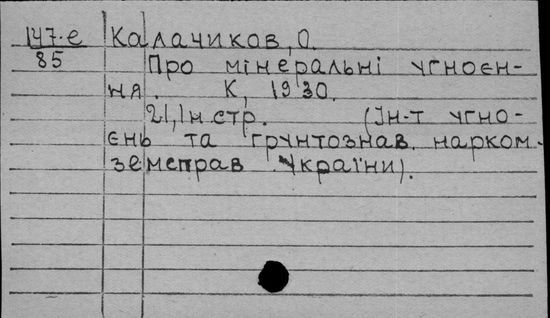 147-е Калачиков, О.
85
Про мінеральні угноєн-
ня. К, 1930.
21, 1н. стр. (Ін-т угно-
єнь та грунтознав. нарком-
земсправ України).